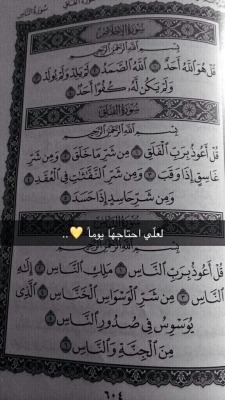 سُورَةُ الإِخْلَاصِ
بِسْمِ اللَّهِ الرَّحْمَٰنِ الرَّحِيمِ
قُلْ هُوَ اللَّهُ أَحَدٌ ١ اللَّهُ الصَّمَدُ ٢ لَمْ يَلِدْ وَلَمْ يُولَدْ ٣
وَلَمْ يَكُن لَّهُ كُفُوًا أَحَدٌ ٤
سُورَةُ الْفَلَقِ
بِسْمِ اللَّهِ الرَّحْمَٰنِ الرَّحِيمِ
قُلْ أَعُوذُ بِرَبِّ الْفَلَقِ ١ مِن شَرِّ مَا خَلَقَ ٢ وَمِن شَرِّ
غَاسِقٍ إِذَا وَقَبَ ٣ وَمِن شَرِّ النَّفَّاثَاتِ فِي الْعُقَدِ ٤
وَمِن شَرِّ حَاسِدٍ إِذَا حَسَدَ ٥
لعلّي احتاجها يوماً 💛..
قُلْ أَعُوذُ بِرَبِّ النَّاسِ ١ مَلِكِ النَّاسِ ٢ إِلَٰهِ
النَّاسِ ٣ مِن شَرِّ الْوَسْوَاسِ الْخَنَّاسِ ٤ الَّذِي
يُوَسْوِسُ فِي صُدُورِ النَّاسِ ٥
مِنَ الْجِنَّةِ وَالنَّاسِ ٦
٦٠٤